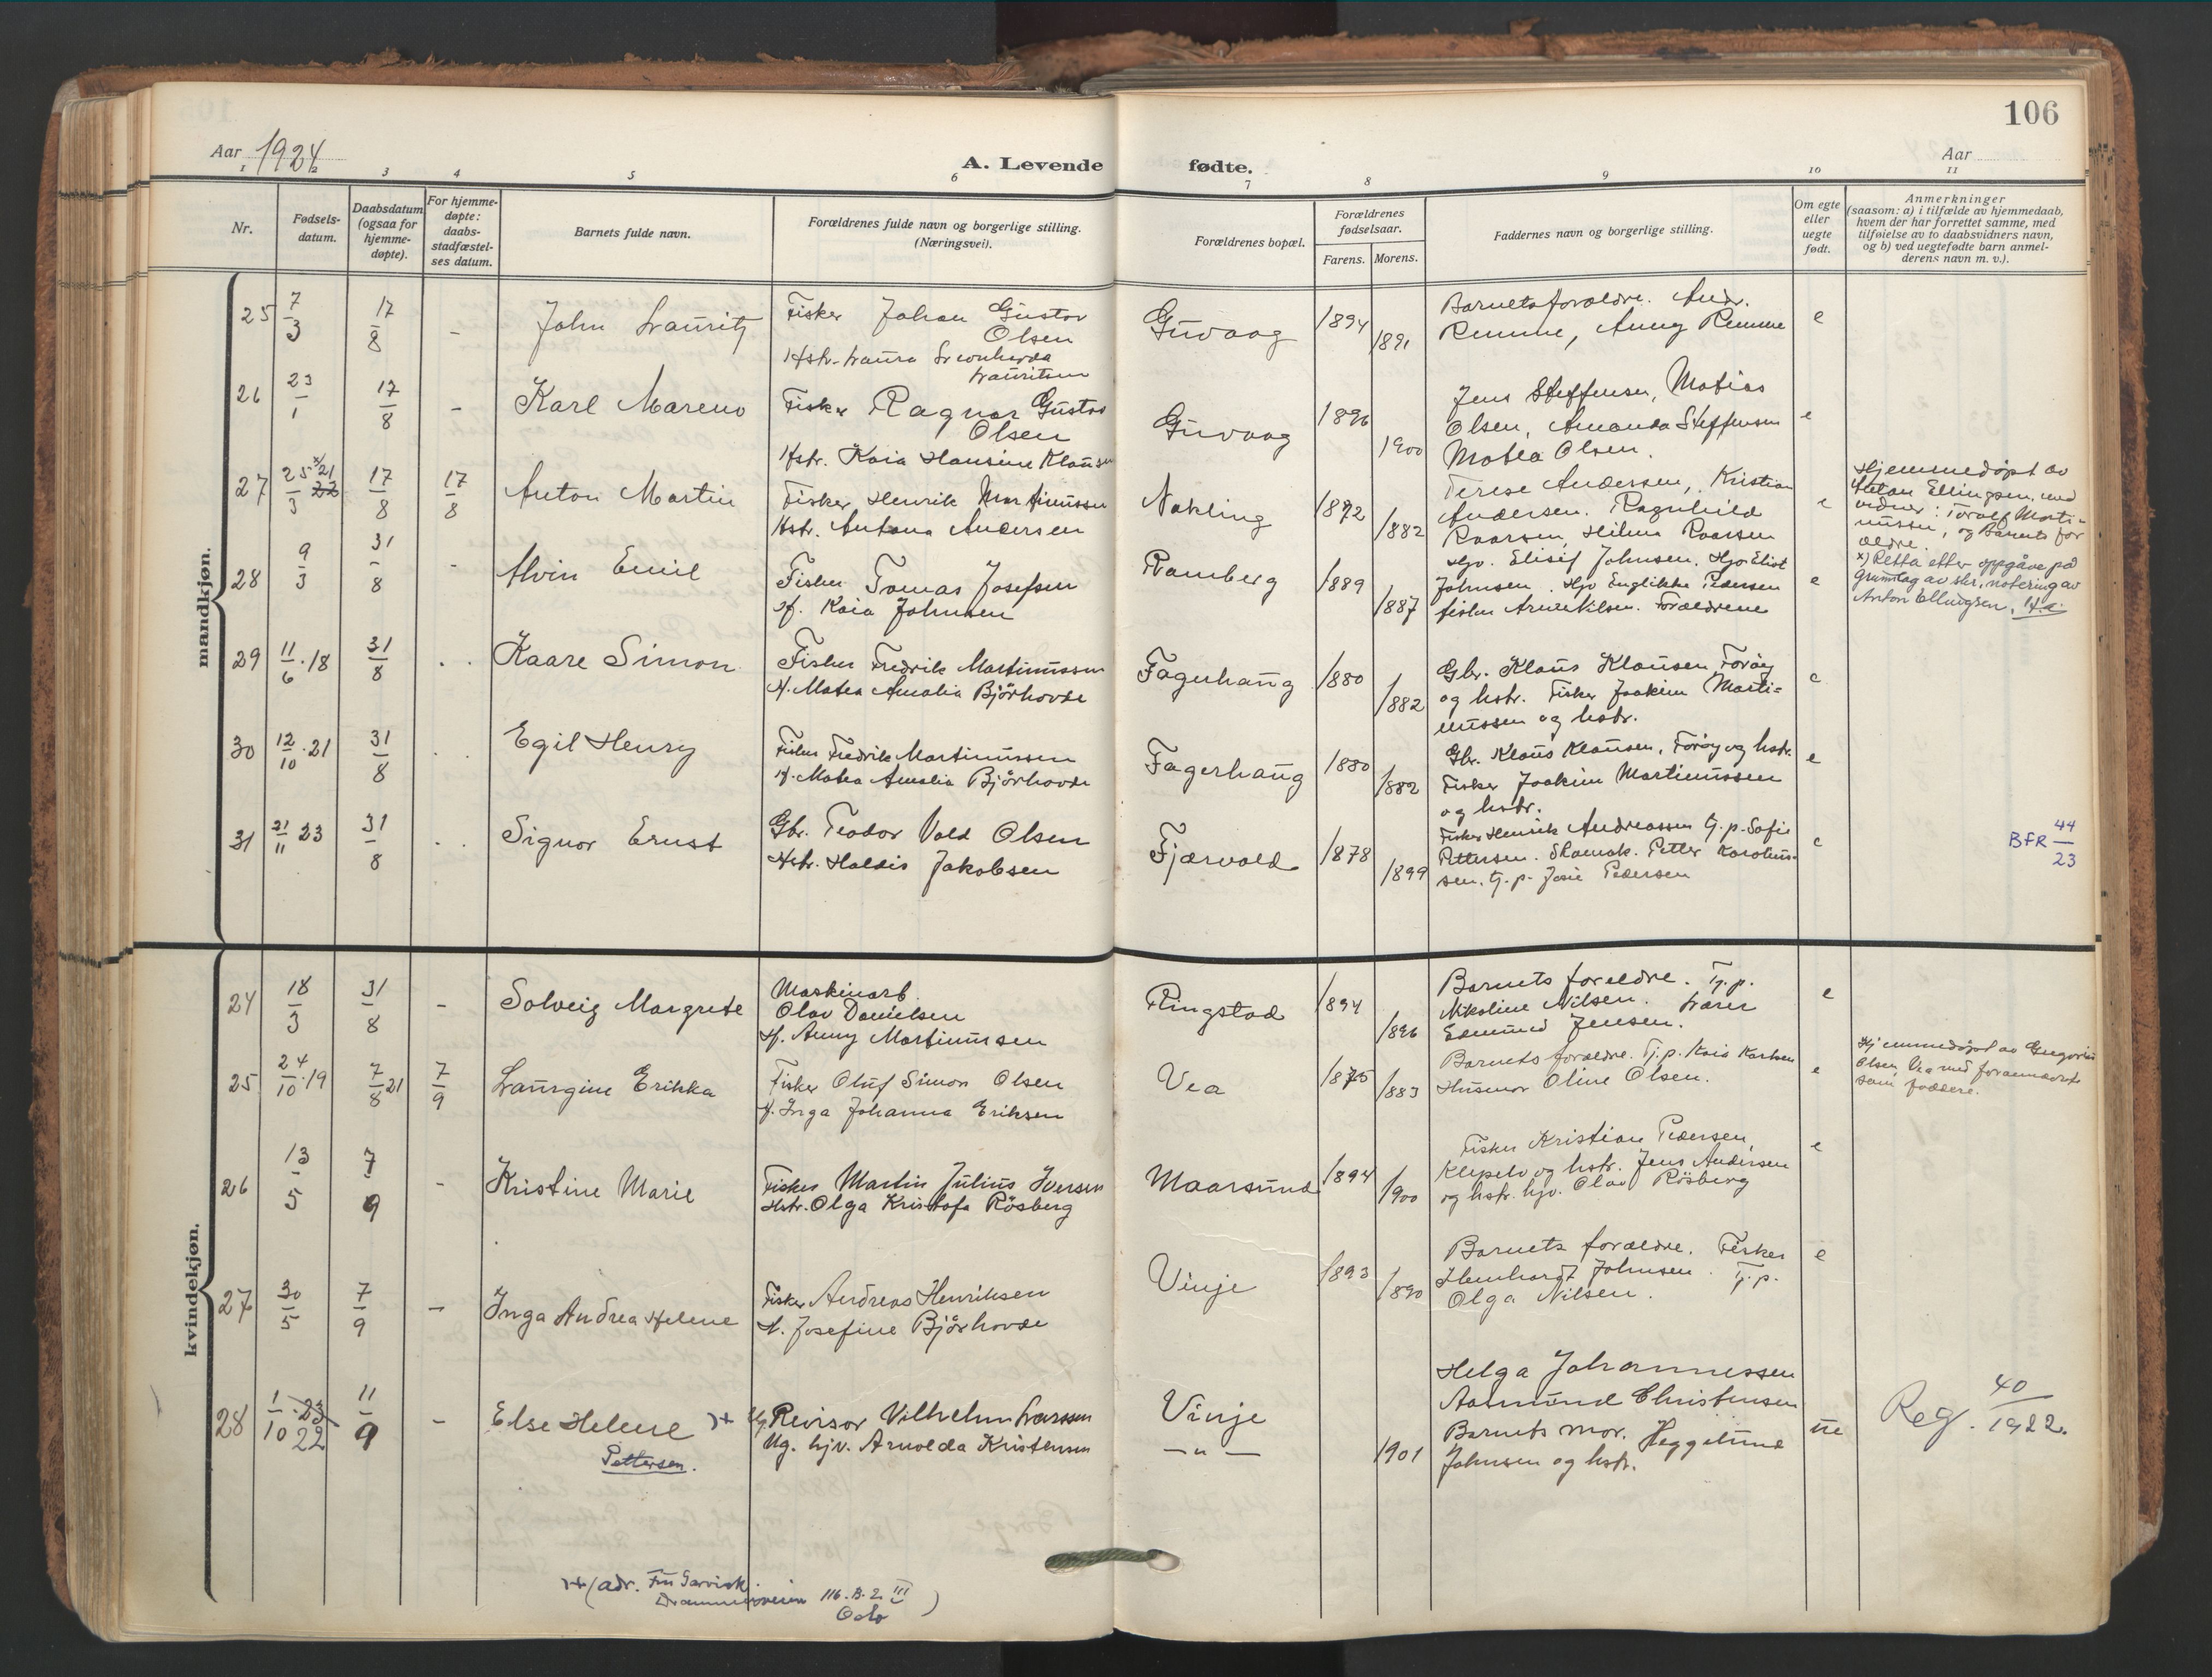 106
Aar 1924
A. Levende fødte.
Aar
1 2 3 4 5 6 7 8 9 10 11
Nr.
Fødsels-
datum.
Daabsdatum
(ogsaa for
hjemme-
døpte).
For hjemme-
døpte:
daabs-
stadfæstel-
ses datum.
Barnets fulde navn.
Forældrenes fulde navn og borgerlige stilling.
(Næringsvei).
Forældrenes bopæl.
Forældrenes
fødselsaar.
Farens. Morens.
Faddernes navn og borgerlige stilling.
Om egte
eller
uegte
født.
Anmerkninger
(saasom: a) i tilfælde av hjemmedaab,
hvem der har forrettet samme, med
tilføielse av to daabsvidners navn,
og b) ved uegtefødte barn anmel-
derens navn m. v.).
mandkjøn.
25 7/3 17/8 - John Lauritz
Fisker Johan Gustav
Olsen
Hstr. Laura
Lauritsen
Guvaag 1894 1891
Barnets forældre. Andr.
Remme, Anny Remme
e
26 23/1 17/8 - Karl Mareno
Fisker Ragnar Gustav
Olsen
Hstr. Kaia Hansine Klausen
Guvaag 1896 1900
Jens Steffensen, Matias
Olsen, Amanda Steffensen
Matea Olsen.
e
27 25/3 x/21 22 17/8 17/8 Anton Martin
Fisker Henrik Martinussen
Hstr. Antona Andersen
Nakling 1872 1882
Terese Andersen, Kristian
Andersen. Ragnhild
Roarsen, Hilma Roarsen
e
Hjemmedøpt av
Anton Ellingsen, med
vidner: Torolf Marti-
nussen, og barnets for
ældre.
x) Retta etter oppgåve på
grunnlag av skr. notering av
Anton Ellingsen. H.a.
28 9/3 31/8 - Alvin Emil
Fisker Tomas Josefsen
Hf. Kaia Johnsen
Ramberg 1889 1887
Hjv. Elisif Johnsen. Hjv Eliot
Johnsen. Hjv Englikke Pedersen
fisker Arne Nilsen. Forældrene
e
29 11/6 . 18 31/8 . . Kaare Simon
Fisker Fredrik Martinussen
H. Matea Amalia Björhovde
Fagerhaug 1880 1882
Gbr. Klaus Klausen Forøy
og hstr. Fisker Joakim Marti-
nussen og hstr.
e
30 12/10 . 21 31/8 . Egil Henry
Fisker Fredrik Martinussen
H. Matea Amalia Björhovde
Fagerhaug 1880 1882
Gbr. Klaus Klausen, Forøy og hstr.
Fisker Joakim Martinussen
og hstr.
e
31 21/11 23 31/8 . . Signor Ernst
Gbr. Teodor Vald Olsen
Hstr. Haldis Jakobsen
Fjærvold 1878 1899
Fisker Henrik Andreassen tj.p. Sofie
Pettersen. Skomak. Petter Karolius-
sen. tj.p. Josie Pedersen
e
BFR 44/23
kvindekjøn.
24 18/3 31/8 - Solveig Margrete
Maskinarb.
Olav Danielsen
Hf. Anny Martinussen
Ringstad 1894 1896
Barnets foreldre. Tj.p.
Nikoline Nilsen. Lærer
Edmund Jensen.
e
25 24/10 . 19 7/8 21 7/9 Laurgine Erikka
Fisker Oluf Simon Olsen
H. Inga Johanna Eriksen
Vea 1875 1883
Barnets forældre. Tj.p. Kaia Karlsen
Husmor Oline Olsen.
e
Hjemmedøpt av Gregorius
Olsen, Vea med forannævnte
som faddere.
26 13/5 7/9 - Kristine Marie
Fisker Martin Julius Iversen
Hstr. Olga Kristofa Rösberg
Maarsund 1894 1900
Fisker Kristian Pedersen,
Kleppelv og hstr. Jens Andersen
og hstr. hjv. Olav Rösberg
e
27 30/5 7/9 - Inga Andrea Helene
Fisker Andreas Henriksen
H. Josefine Björhovde
Vinje 1893 1890
Barnets forældre. Fisker
Henhardt Johnsen. Tj.p.
Olga Nilsen.
e
28 1/10 . 23 22 11/9 - Else Helene
Pettersen.
Ug. Revisor Vilhelm Larssen
Ug. hjv. Arnolda Kristensen
Vinje
— " —
1901
Helga Johannessen
Aasmund Christensen
Barnets mor. Heggelund
Johnsen og hstr.
ue
Reg. 40/1922.
(adr. Fru Sarvisk.
Drammensveien 116.B.2 III
Oslo )